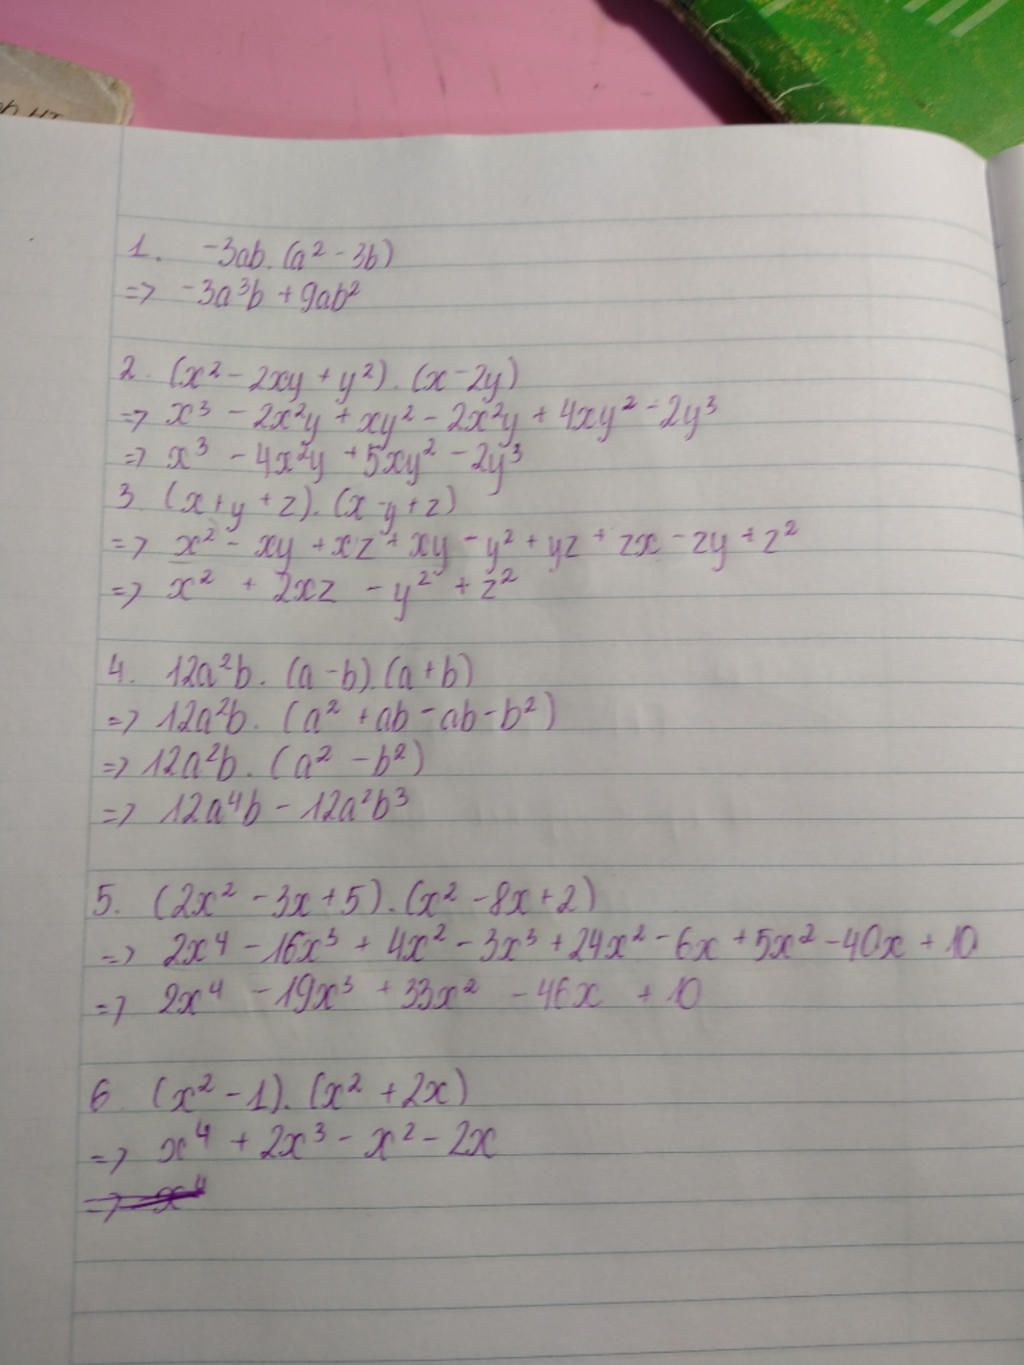 1. -3ab.(a² - 3b)
=> -3a³b + 9ab²
2. (x² - 2xy + y²).(x - 2y)
=> x³ - 2x²y + xy² - 2x²y + 4xy² - 2y³
=> x³ - 4x²y + 5xy² - 2y³
3. (x+y+z).(x-y+z)
=> x² - xy + xz + xy - y² + yz + zx - zy + z²
=> x² + 2xz - y² + z²
4. 12a²b.(a-b).(a+b)
=> 12a²b.(a² + ab - ab - b²)
=> 12a²b.(a² - b²)
=> 12a⁴b - 12a²b³
5. (2x² - 3x + 5).(x² - 8x + 2)
=> 2x⁴ - 16x³ + 4x² - 3x³ + 24x² - 6x + 5x² - 40x + 10
=> 2x⁴ - 19x³ + 33x² - 46x + 10
6. (x² - 1).(x² + 2x)
=> x⁴ + 2x³ - x² - 2x
=> x⁴